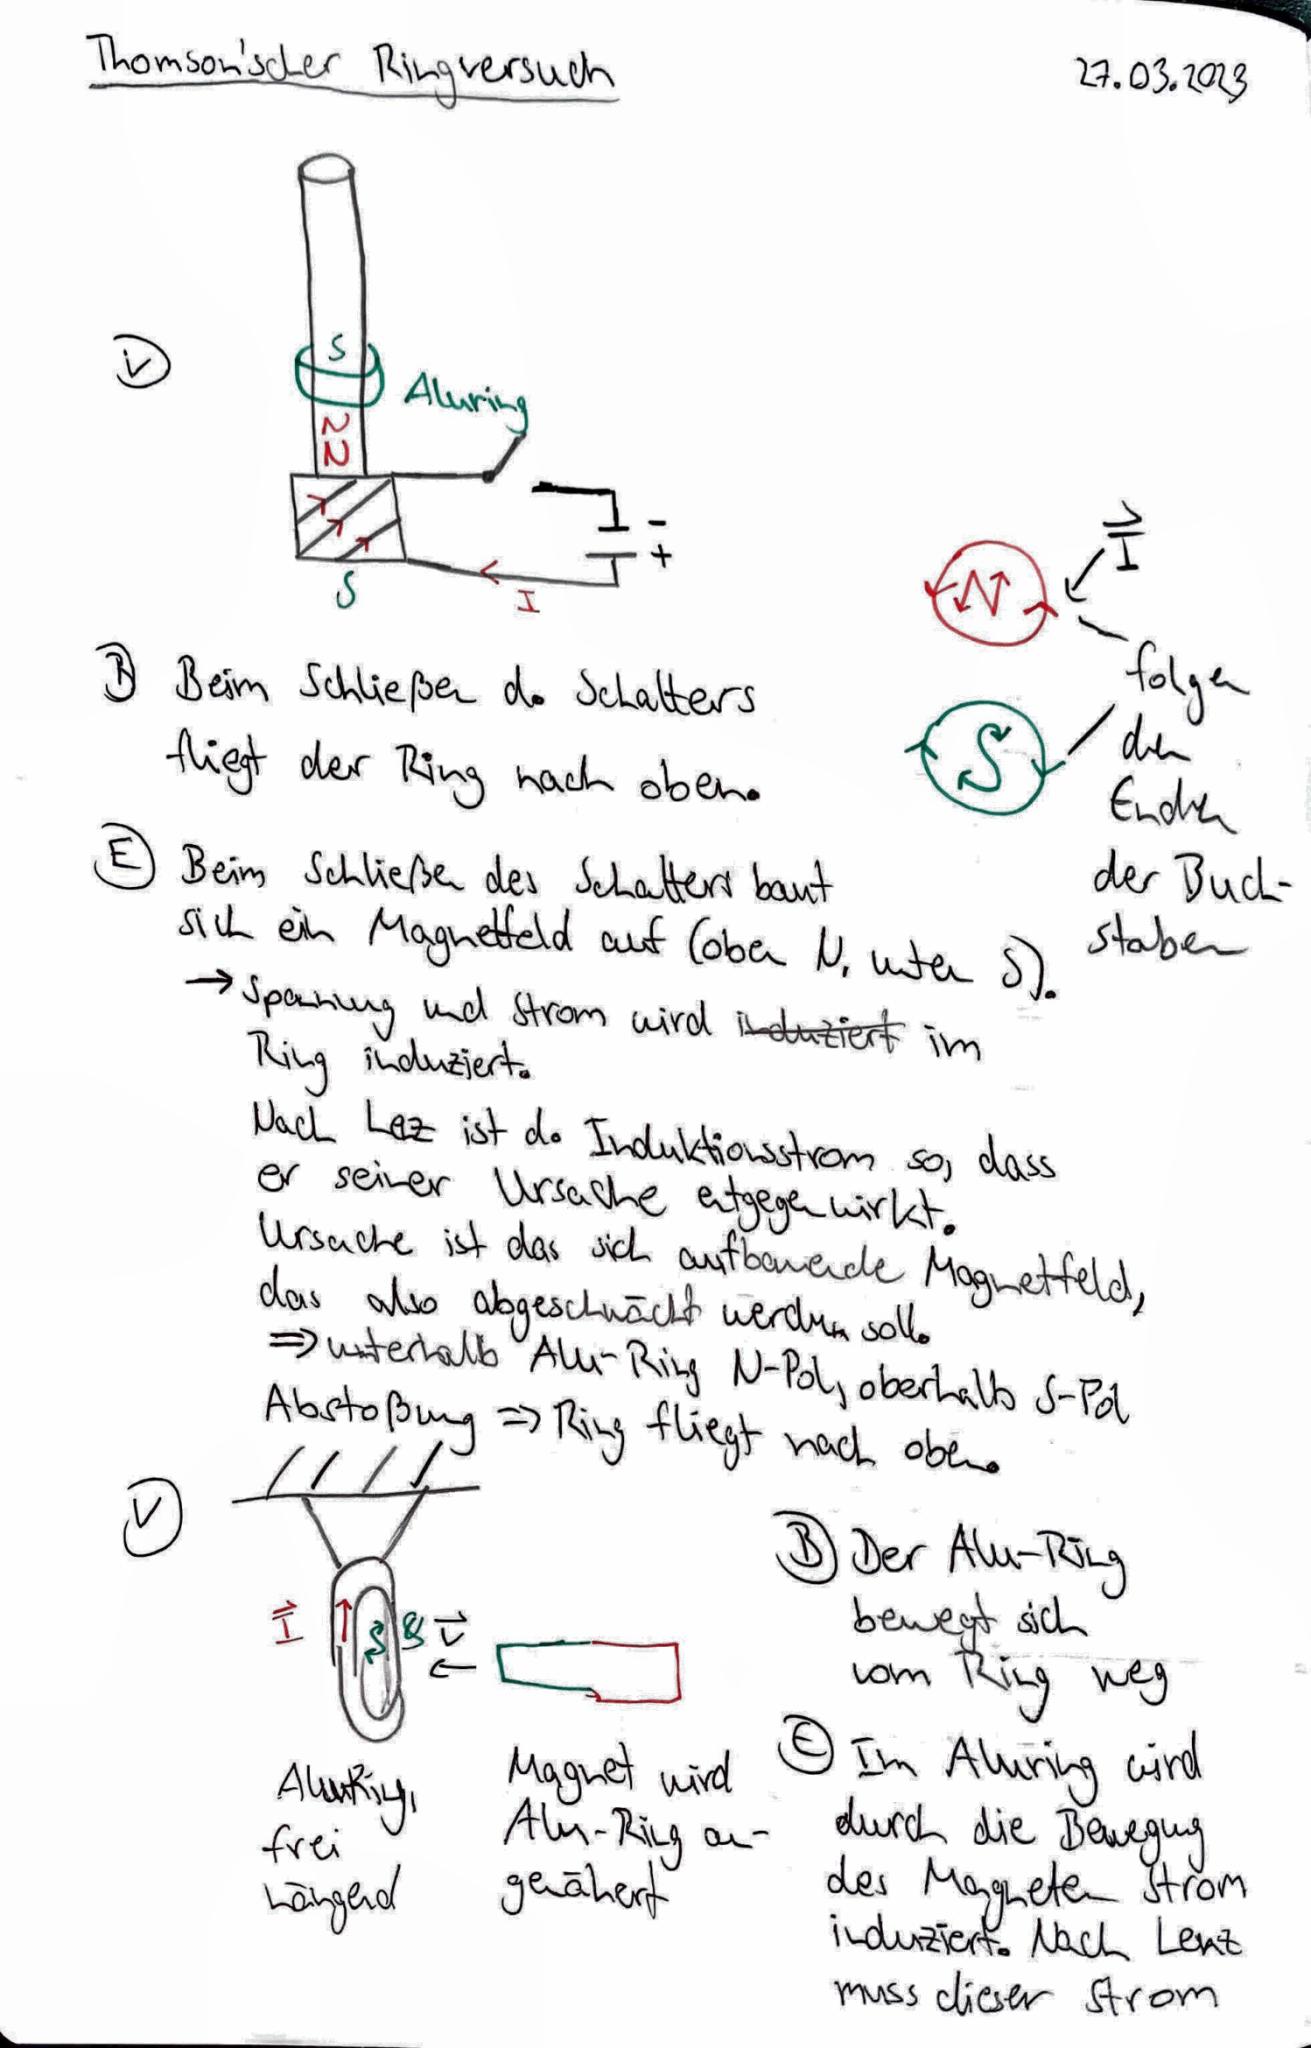 Thomson'scher Ringversuch
27.03.2023
V
S
Aluring
N
N
-
+
S
I
I
N
S
folgen
den
Enden
der Buch-
staben
B Beim Schließen d. Schalters
fliegt der Ring nach oben.
E Beim Schließen des Schalters baut
sich ein Magnetfeld auf (oben N, unten S).
→ Spannung und Strom wird induziert im
Ring induziert.
Nach Lenz ist d. Induktionsstrom so, dass
er seiner Ursache entgegenwirkt.
Ursache ist das sich aufbauende Magnetfeld,
das also abgeschwächt werden soll.
⇒ unterhalb Alu-Ring N-Pol, oberhalb S-Pol
Abstoßung ⇒ Ring fliegt nach oben.
V
I
S
v
AluRing,
frei
hängend
Magnet wird
Alu-Ring an-
genähert
B Der Alu-Ring
bewegt sich
vom Ring weg
E Im Aluring wird
durch die Bewegung
des Magneten Strom
induziert. Nach Lenz
muss dieser Strom